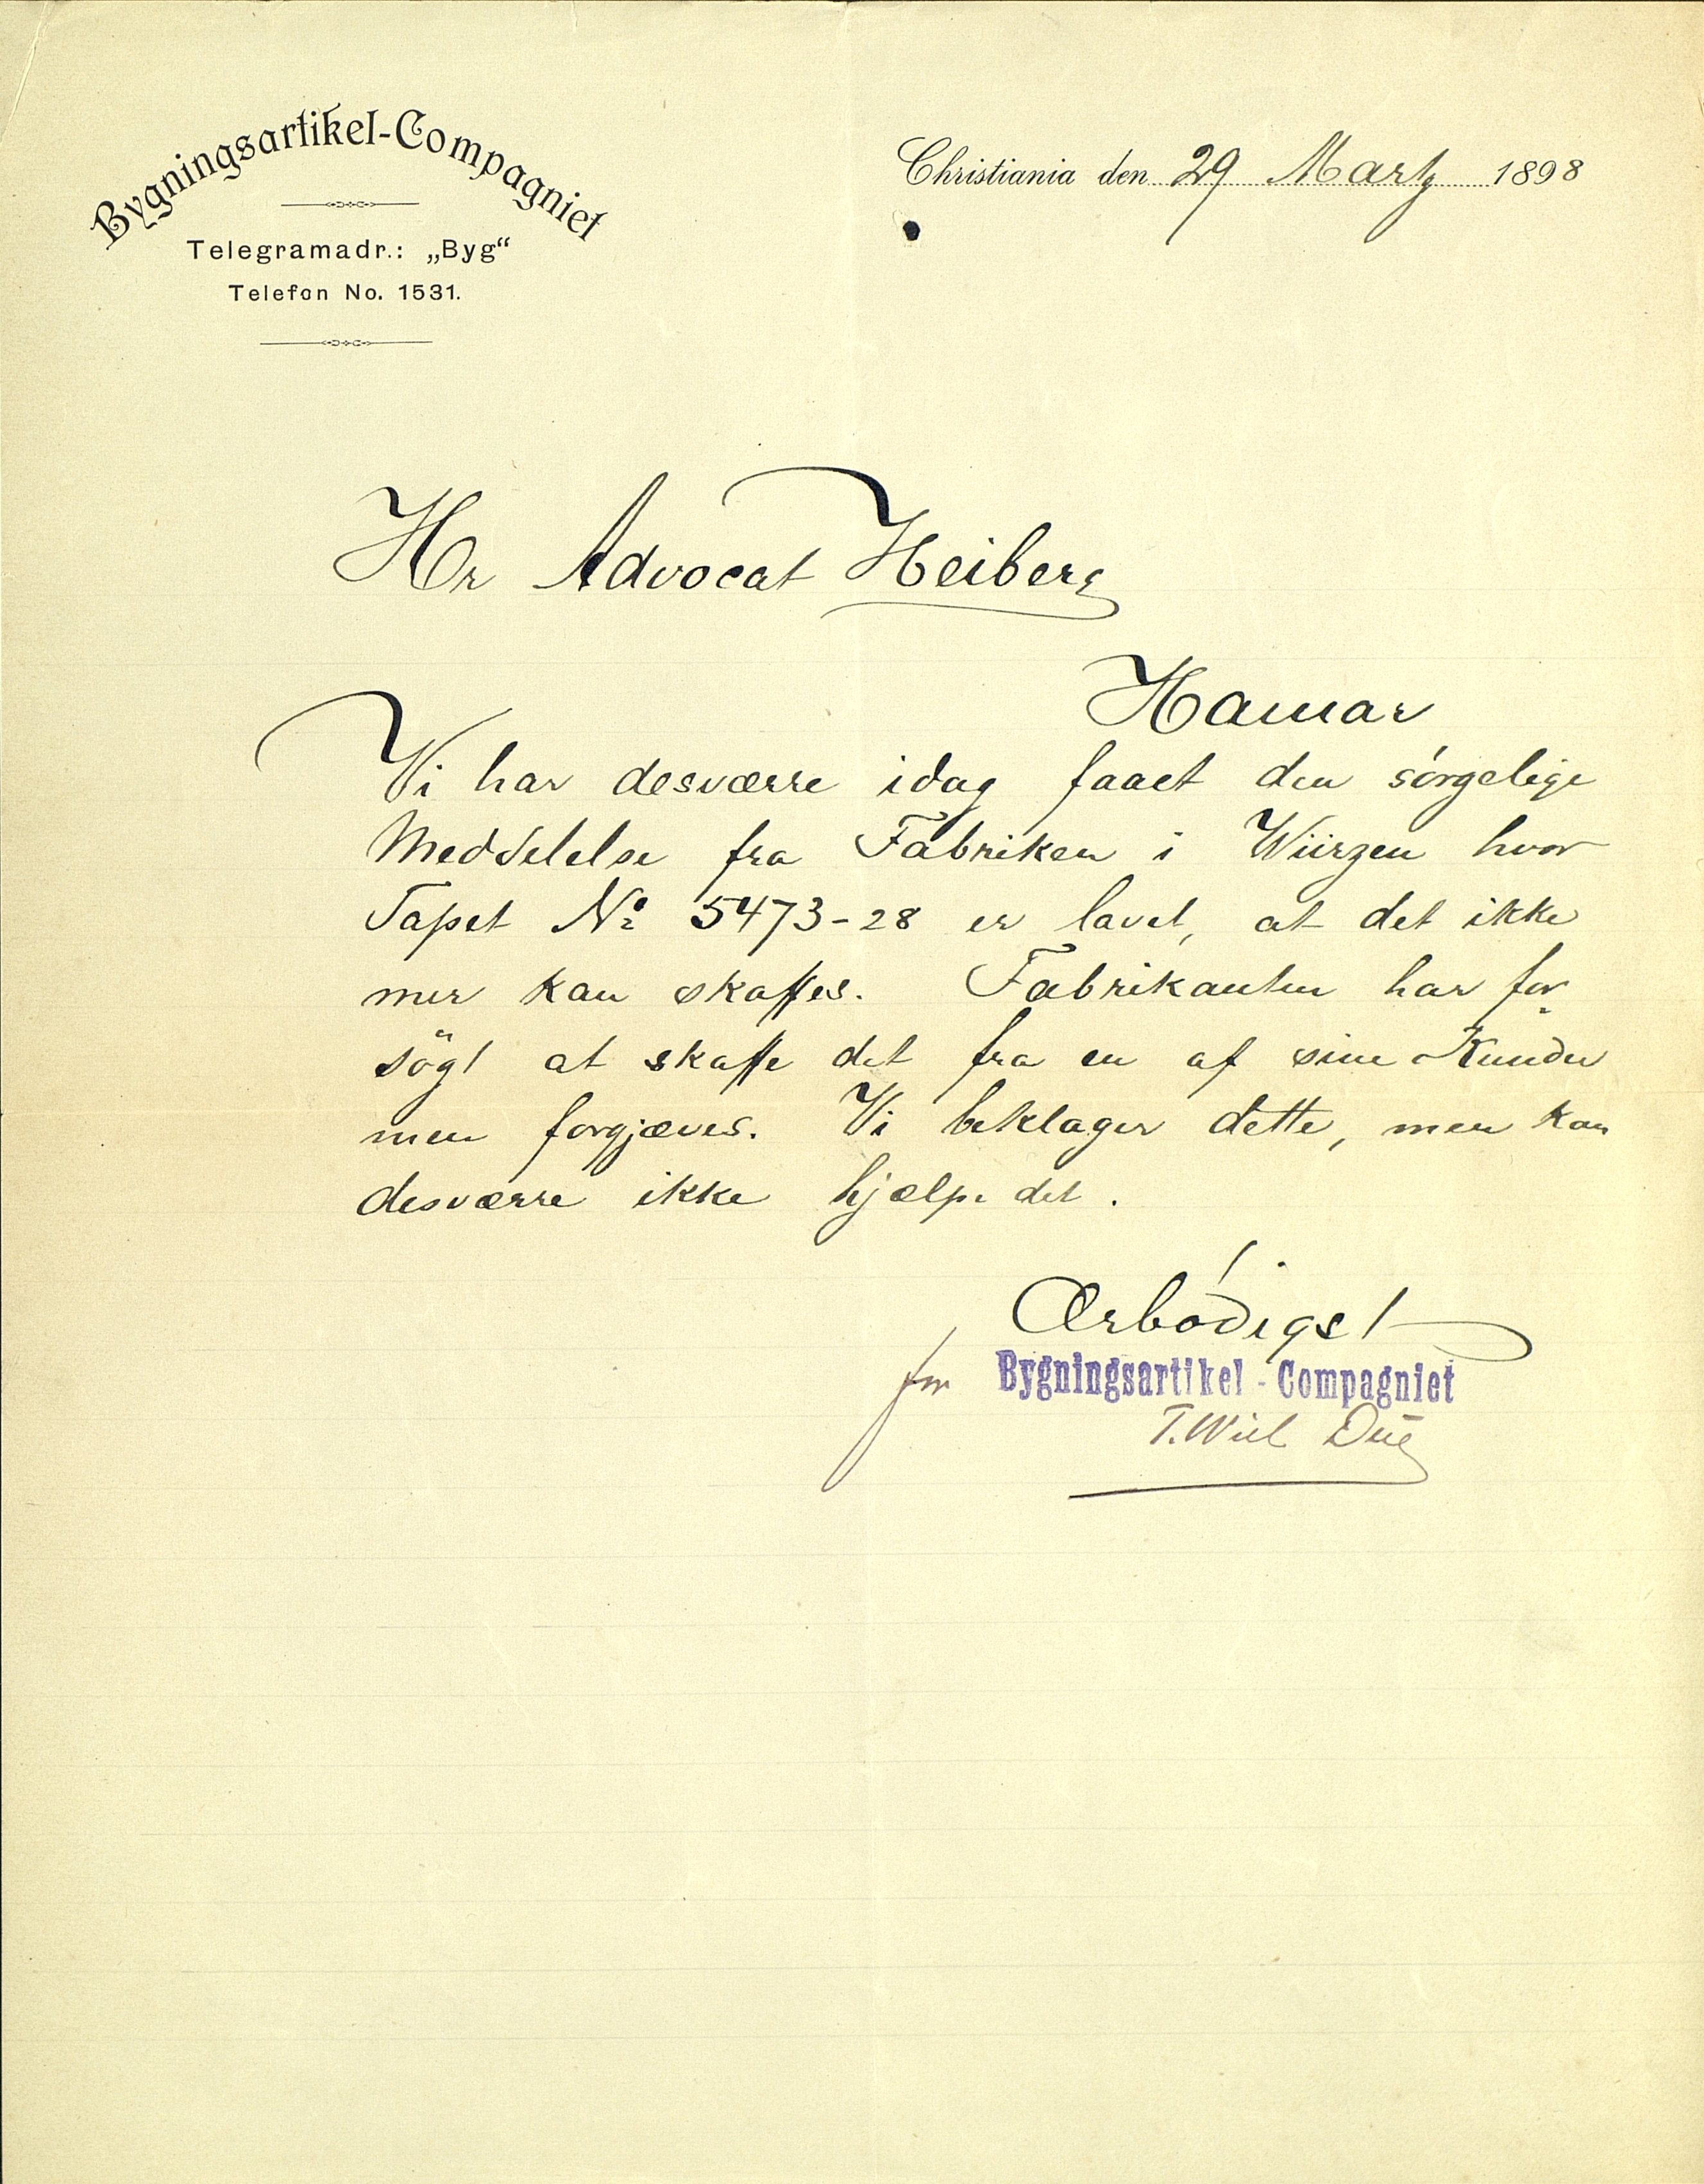 Bygningsartikel-Compagniet
Telegramadr.: „Byg“
Telefon No. 1531.
Christiania den 29 Martz 1898
Hr Advocat Heiberg
Hamar
Vi har desværre idag faaet den sórgelige
Meddelelse fra Fabriken i Würzen hvor
Tapet No 5473-28 er lavet, at det ikke
mer kan skaffes. Fabrikanten har for
sögt at skaffe det fra en af sine Kunder
men forgjæves. Vi beklager dette, men kan
desværre ikke hjælpe det.
Ærbódigst
for Bygningsartikel-Compagniet
T. Wiel